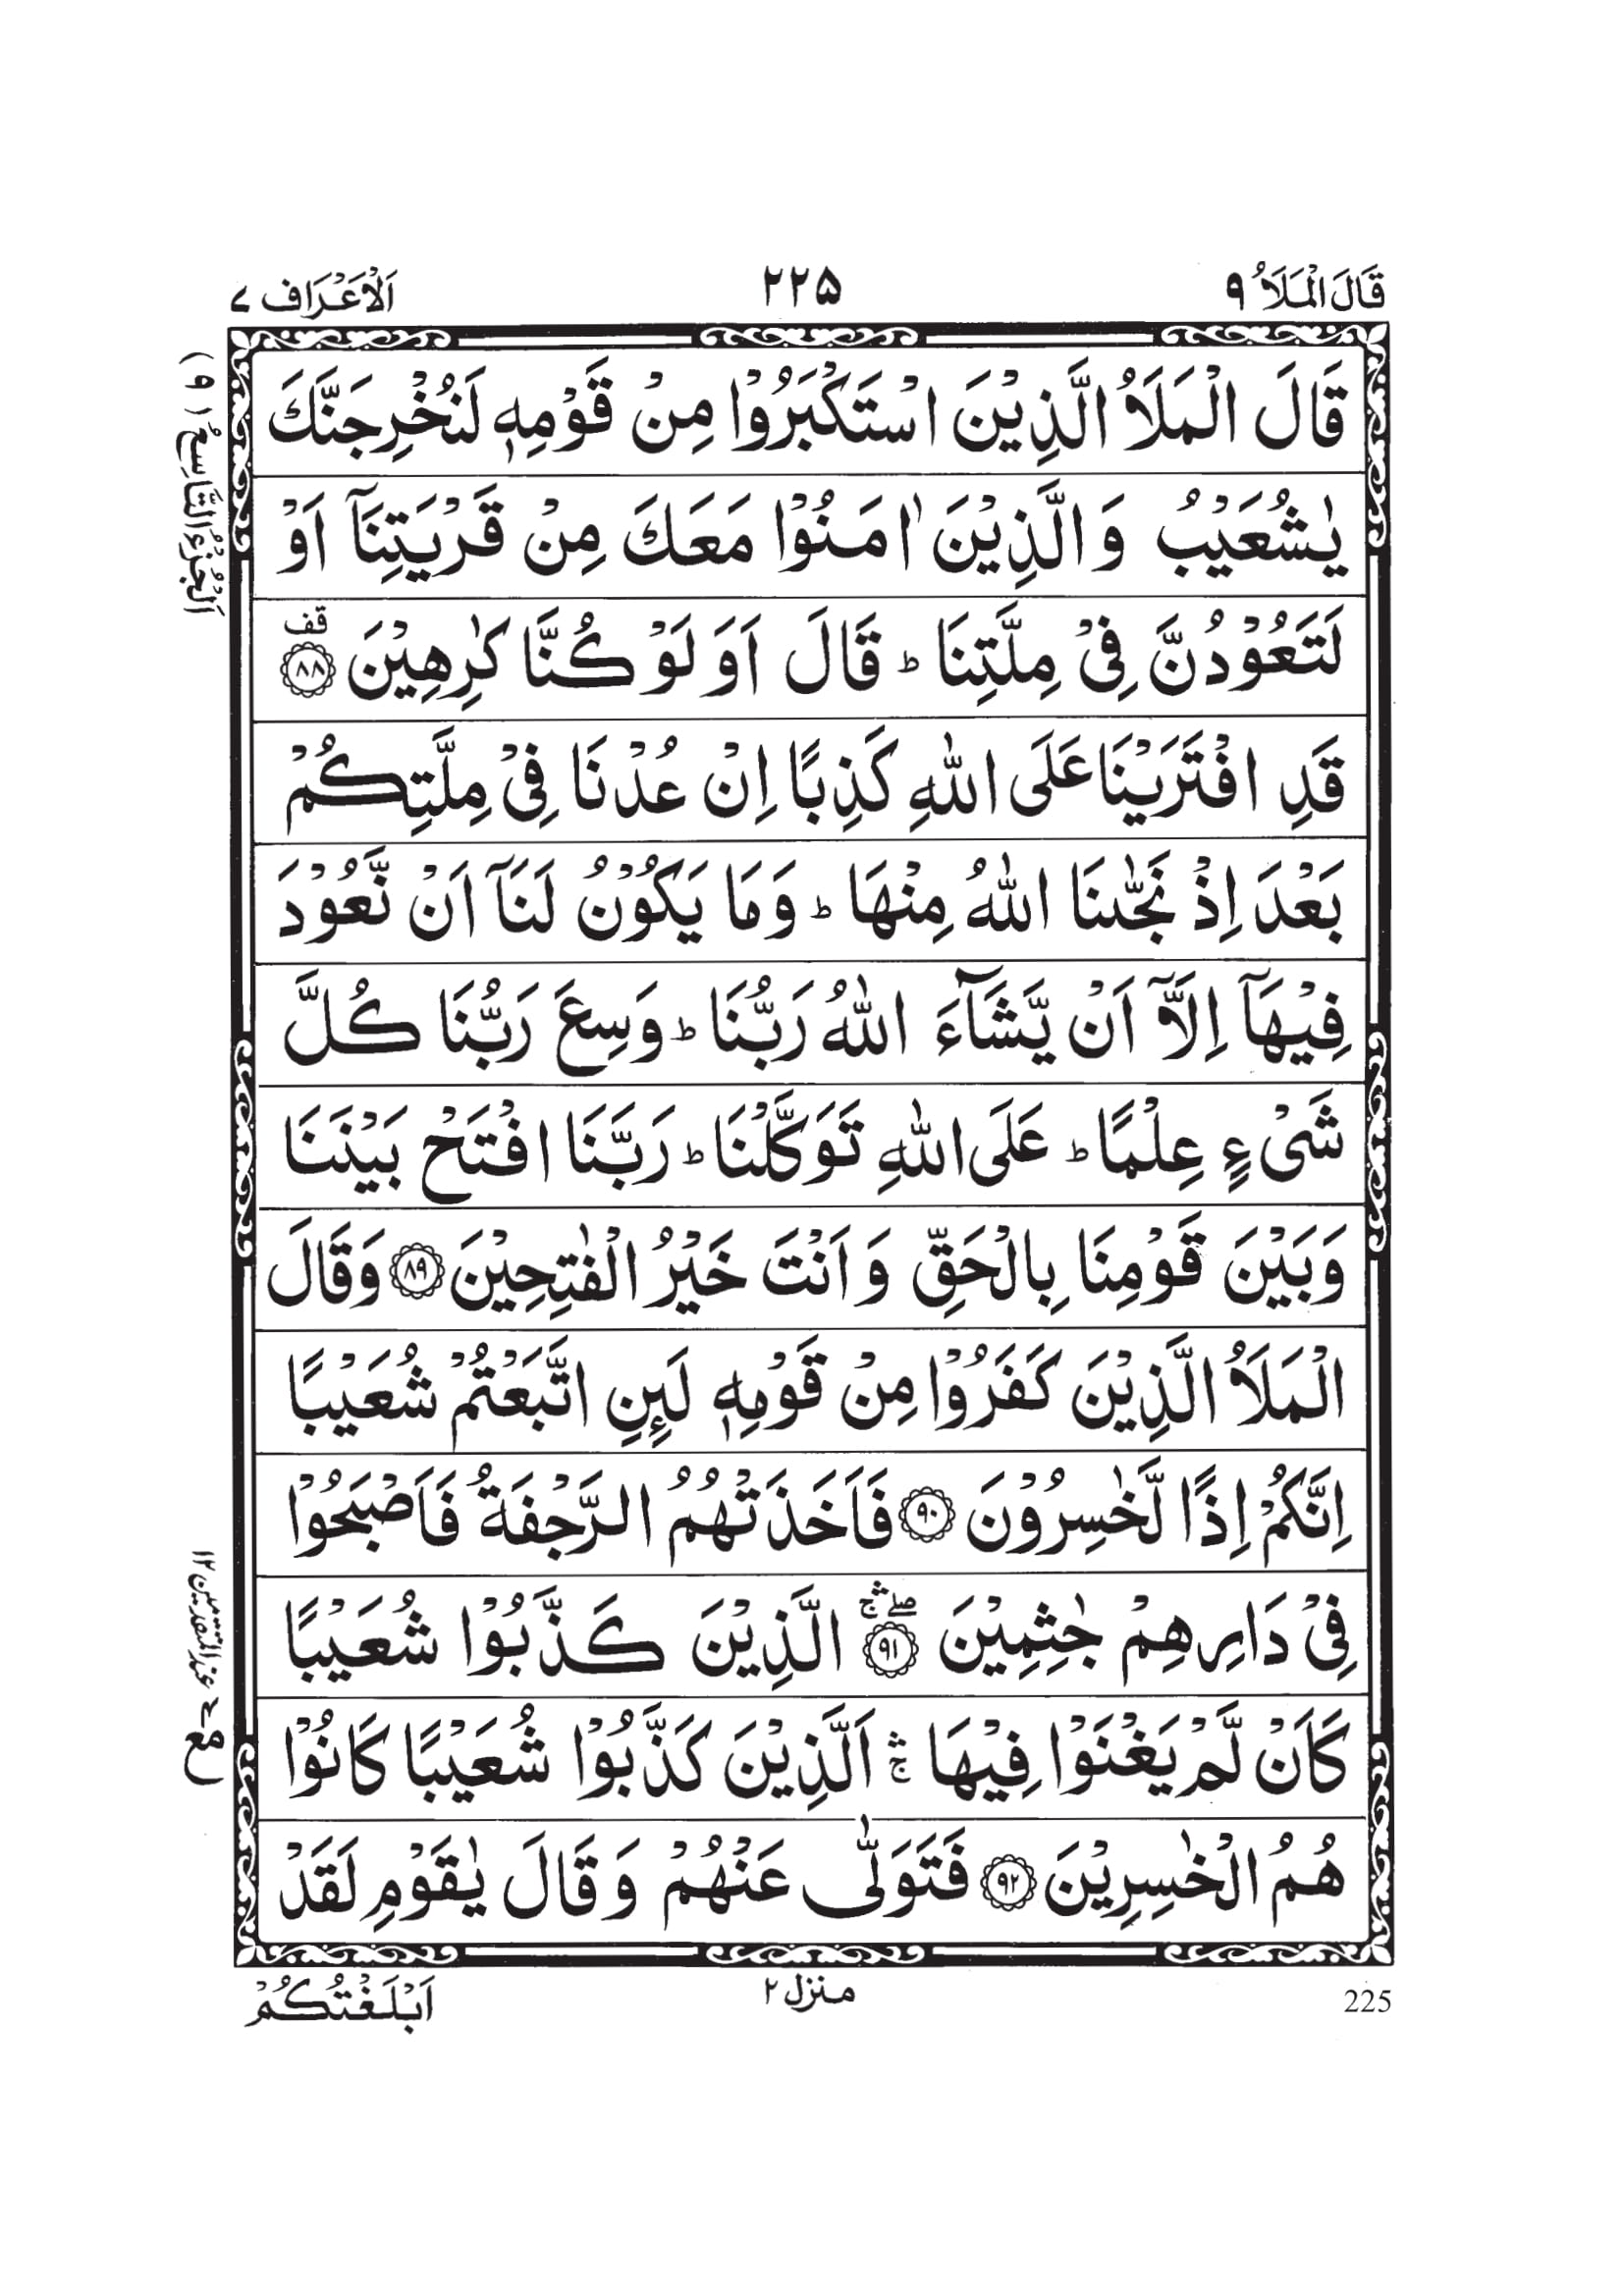 قَالَ الْمَلَاُ ۹
۲۲۵
اَلْاَعْرَاف ۷
اَلْجُزْءُ التَّاسِعُ (۹)
قَالَ الْمَلَاُ الَّذِيْنَ اسْتَكْبَرُوْا مِنْ قَوْمِهٖ لَنُخْرِجَنَّكَ
يٰشُعَيْبُ وَالَّذِيْنَ اٰمَنُوْا مَعَكَ مِنْ قَرْيَتِنَآ اَوْ
لَتَعُوْدُنَّ فِيْ مِلَّتِنَا ؕ قَالَ اَوَلَوْ كُنَّا كٰرِهِيْنَ ۟قف ۸۸
قَدِ افْتَرَيْنَا عَلَى اللّٰهِ كَذِبًا اِنْ عُدْنَا فِيْ مِلَّتِكُمْ
بَعْدَ اِذْ نَجّٰىنَا اللّٰهُ مِنْهَا ؕ وَمَا يَكُوْنُ لَنَآ اَنْ نَّعُوْدَ
فِيْهَآ اِلَّآ اَنْ يَّشَآءَ اللّٰهُ رَبُّنَا ؕ وَسِعَ رَبُّنَا كُلَّ
شَيْءٍ عِلْمًا ؕ عَلَى اللّٰهِ تَوَكَّلْنَا ؕ رَبَّنَا افْتَحْ بَيْنَنَا
وَبَيْنَ قَوْمِنَا بِالْحَقِّ وَاَنْتَ خَيْرُ الْفٰتِحِيْنَ ۸۹ وَقَالَ
الْمَلَاُ الَّذِيْنَ كَفَرُوْا مِنْ قَوْمِهٖ لَىِٕنِ اتَّبَعْتُمْ شُعَيْبًا
اِنَّكُمْ اِذًا لَّخٰسِرُوْنَ ۹۰ فَاَخَذَتْهُمُ الرَّجْفَةُ فَاَصْبَحُوْا
فِيْ دَارِهِمْ جٰثِمِيْنَ ۹۱ ۛۚ صلے الَّذِيْنَ كَذَّبُوْا شُعَيْبًا
كَاَنْ لَّمْ يَغْنَوْا فِيْهَا ۛۚ اَلَّذِيْنَ كَذَّبُوْا شُعَيْبًا كَانُوْا
هُمُ الْخٰسِرِيْنَ ۹۲ فَتَوَلّٰى عَنْهُمْ وَقَالَ يٰقَوْمِ لَقَدْ
اَبْلَغْتُكُمْ
منزل ۲
225